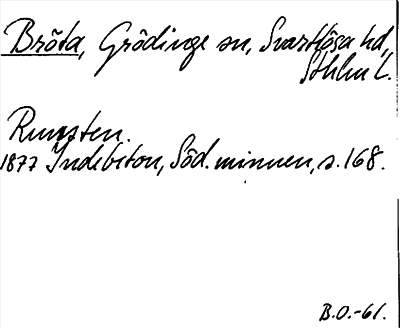 Bröta, Grödinge sn, Svartlösa hd,
Sthlm L.
Runsten.
1877 Indebetou, Söd. minnen, s. 168.
B.O.-61.